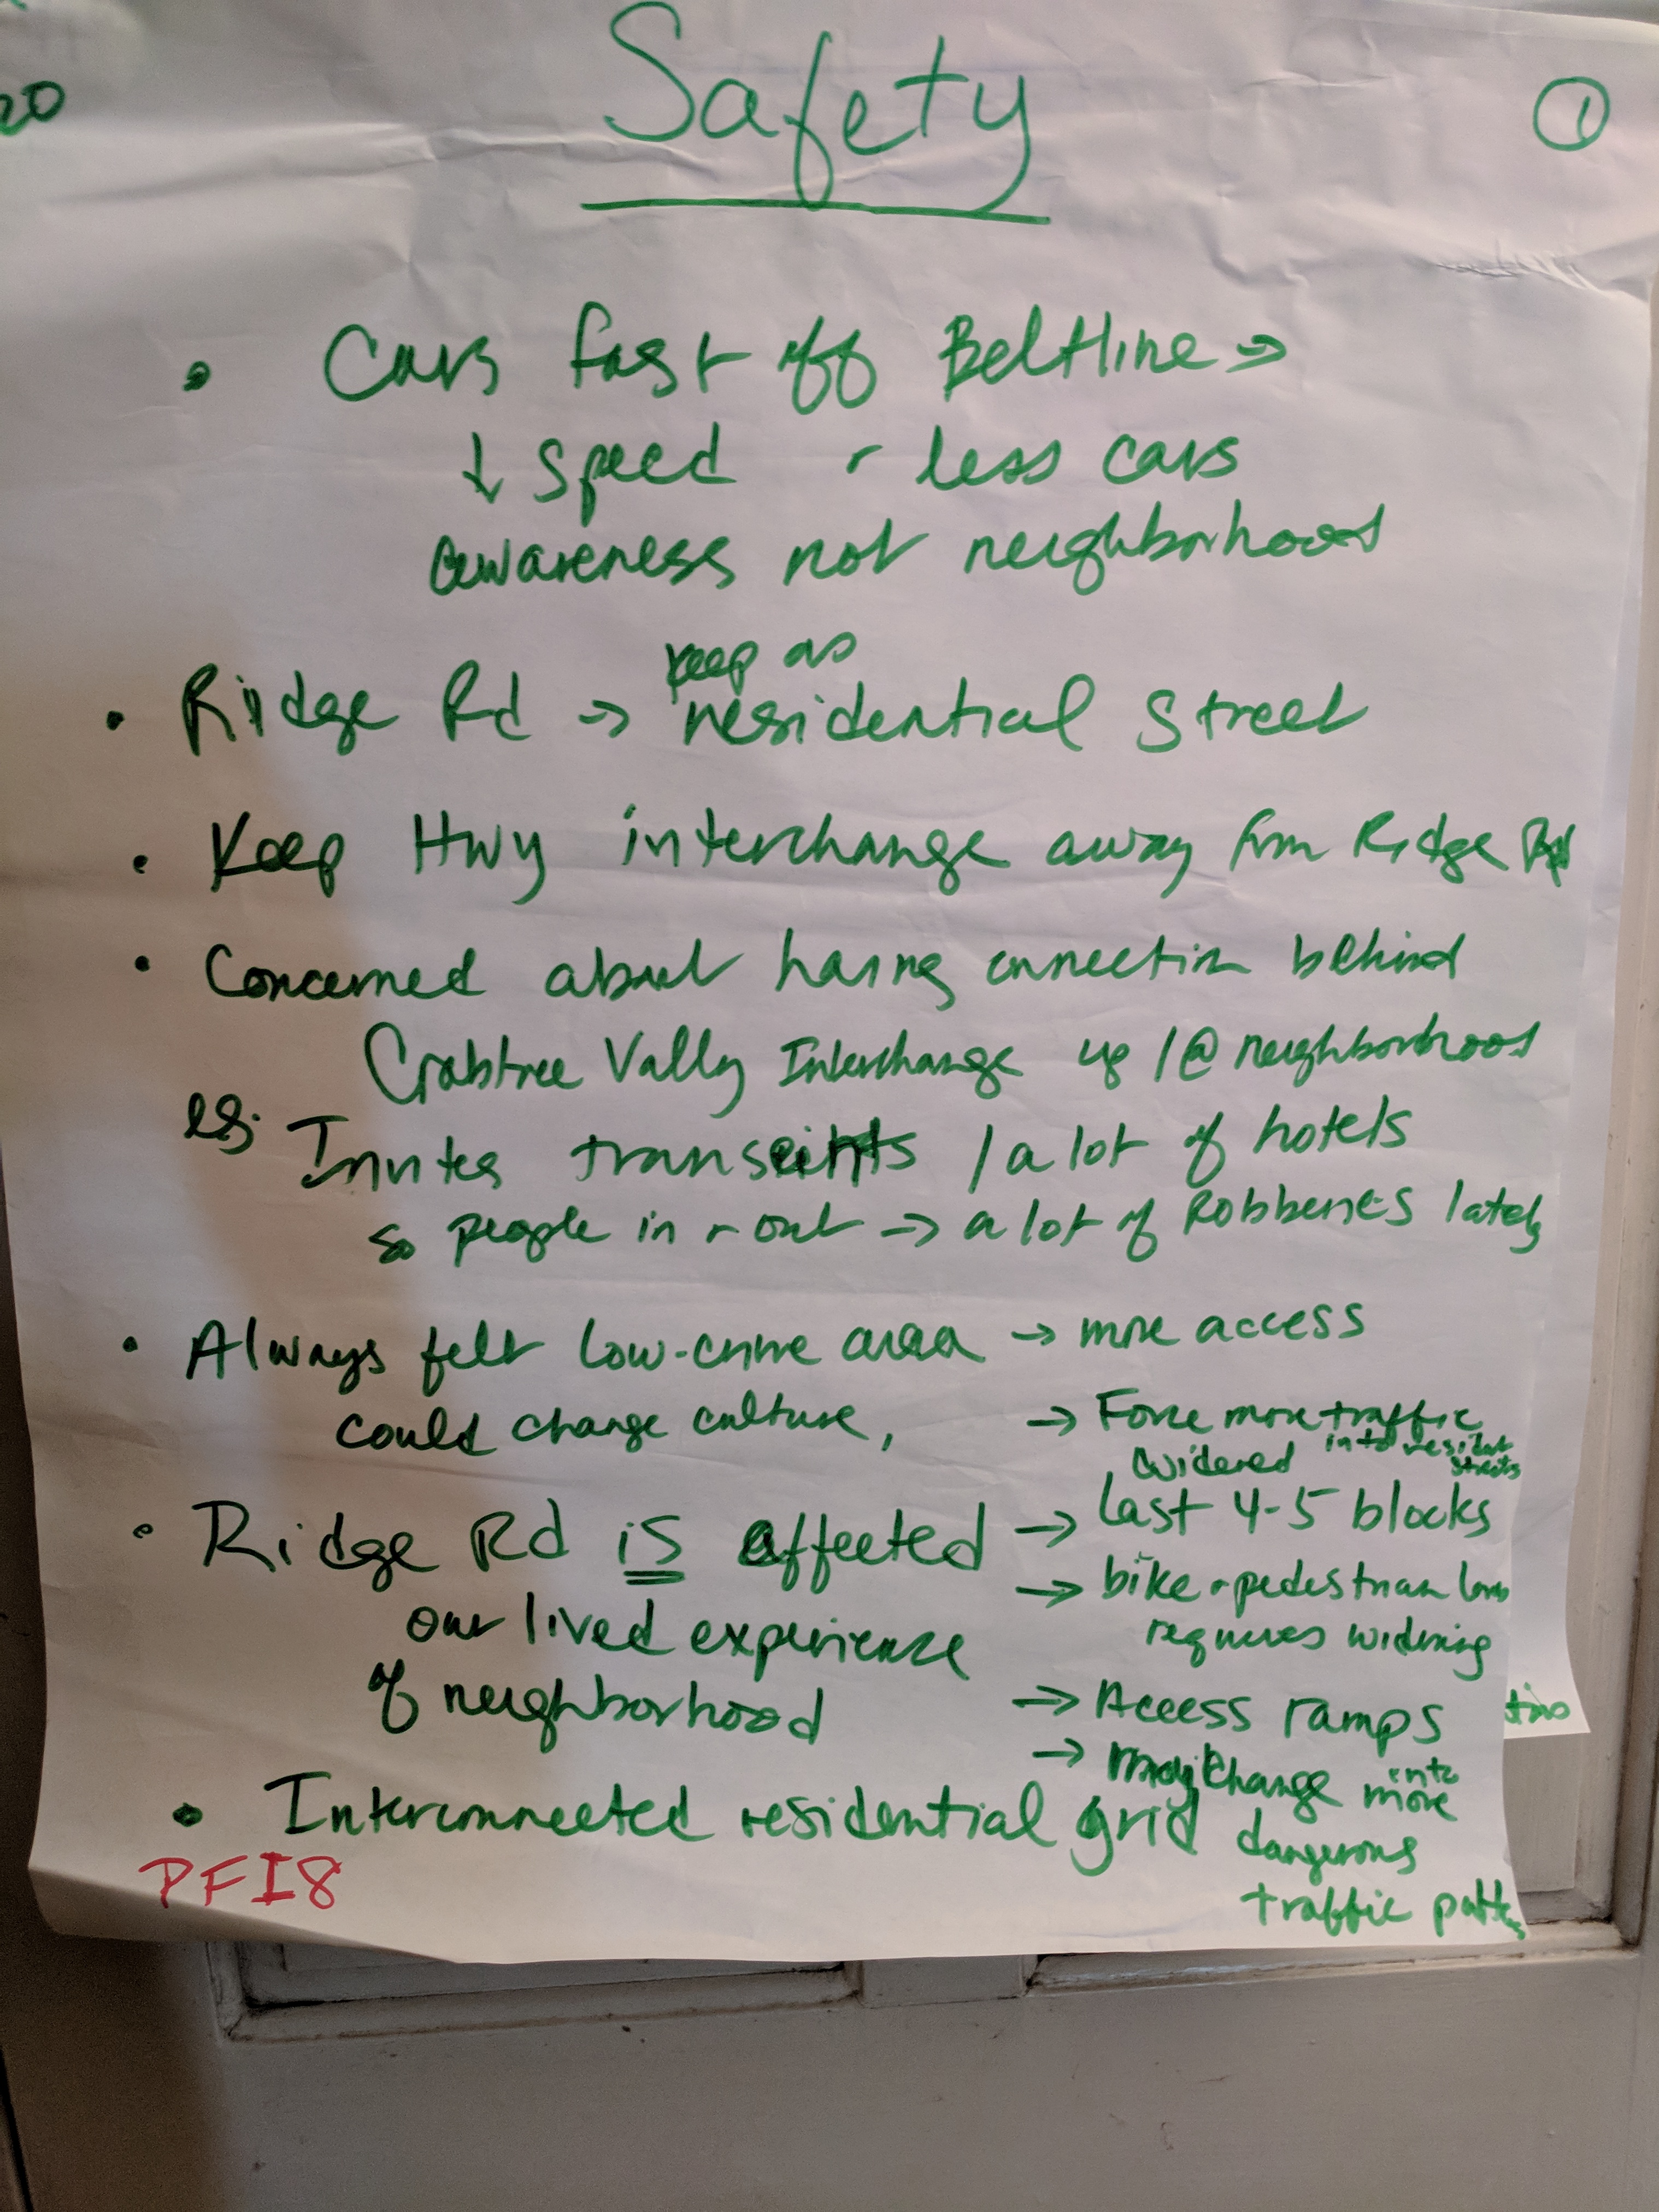 20
Safety
1
• Cars fast off Beltline →
↓ speed + less cars
awareness not neighborhood
keep as
• Ridge Rd → residential street
• Keep Hwy interchange away from Ridge Rd
• Concerned about having connection behind
Crabtree Vally Interchange up / @ neighborhood
eg. Invites transeints / a lot of hotels
so people in + out → a lot of Robberies lately
• Always felt low-crime area → more access
could change culture, → Force more traffic
into resident
streets
widered
• Ridge Rd is affected → last 4-5 blocks
our lived experience → bike + pedestrian
requires widening
of neighborhood → Access ramps
→ may change into
more
• Interconnected residential grid dangerous
traffic
PFI8